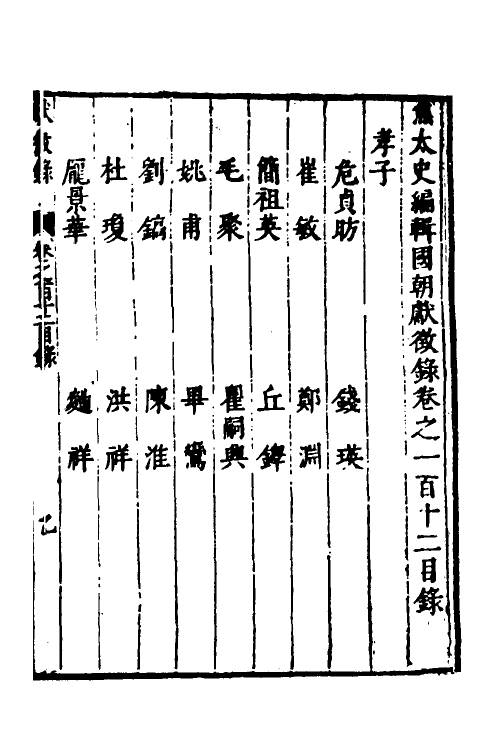 焦太史編輯國朝獻徵錄卷之一百十二目錄
孝子
危貞昉 錢瑛
崔敏 鄭淵
簡祖英 丘鐸
毛聚 瞿嗣興
姚甫 畢鸞
劉鎬 陳淮
杜瓊 洪祥
龐景華 趙祥
獻徵錄 卷之一百十二目錄